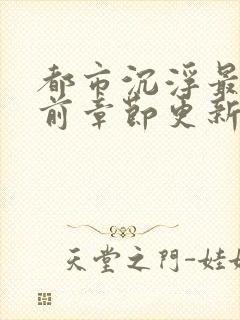 都市沉浮最
前章節更新
天堂之門-娃娃